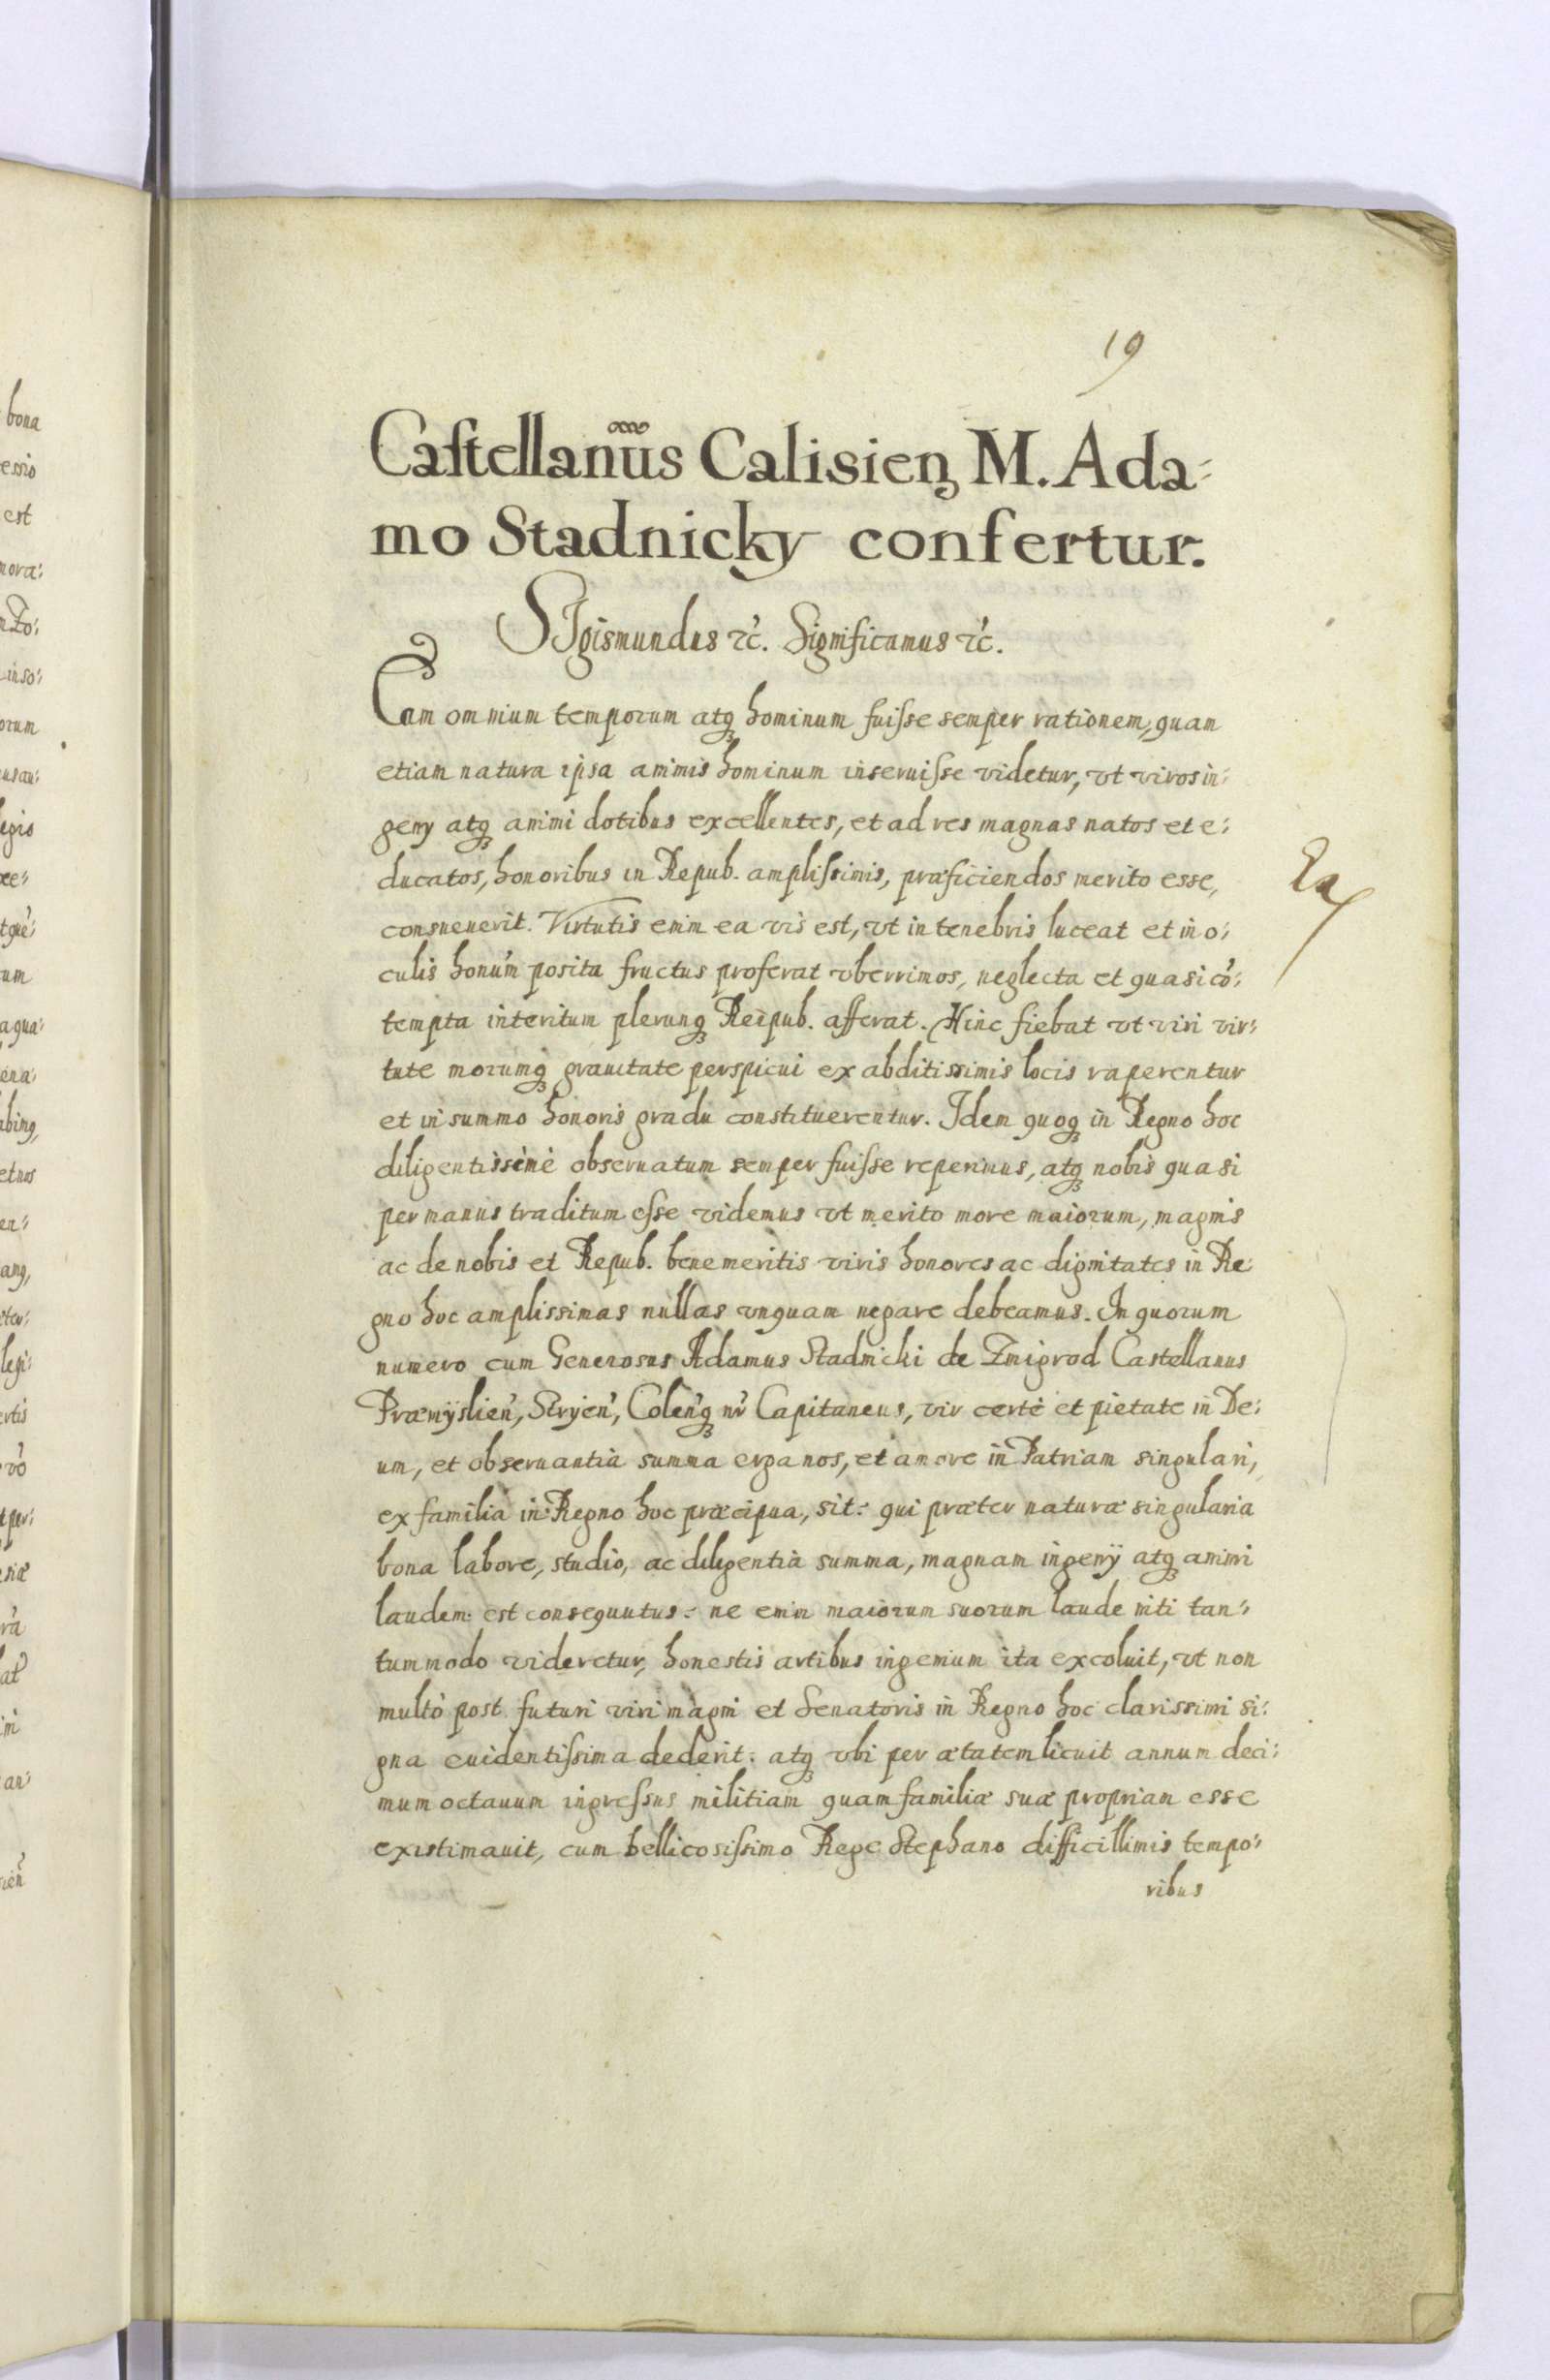 19
Castellanūs Calisien M. Ada-
mo Stadnicky confertur.
SIgismundus &c. Significamus &c.
Eam omnium temporum atq hominum fuisse semper rationem, quam
etiam natura ipsa animis hominum inseruisse videtur, vt viros in-
genÿ atq animi dotibus excellentes, et ad res magnas natos et e-
ducatos, honoribus in Repub. amplissimis, præficiendos merito esse,
consueuerit. Virtutis enim ea vis est, vt in tenebris luceat et in o-
culis honum posita fructus proferat vberrimos, neglecta et quasi cō-
tempta interitum plerunq Reipub. afferat. Hinc fiebat vt viri vir-
tute morumq grauitate perspicui ex abditissimis locis raperentur
et in summo honoris gradu constituerentur. Idem quoq in Regno hoc
diligentissimè obseruatum semper fuisse reperimus, atq nobis quasi
per manus traditum esse videmus vt merito more maiorum, magnis
ac de nobis et Repub. bene meritis viris honores ac dignitates in Re-
gno hoc amplissimas nullas vnquam negare debeamus. In quorum
numero cum Generosus Adamus Stadnicki de Zmigrod Castellanus
Præmÿslień, Stryień, Coleńq nr̄ Capitaneus, vir certè et pietate in De-
um, et obseruantia summa erga nos, et amore in Patriam singulari,
ex familia in Regno hoc præcipua, sit: qui præter naturæ singularia
bona labore, studio, ac diligentia summa, magnam ingenÿ atq animi
laudem est consequutus: ne enim maiorum suorum laude niti tan-
tummodo videretur, honestis artibus ingenium ita excoluit, vt non
multò post futuri viri magni et Senatoris in Regno hoc clarissimi si-
gna euidentissima dederit: atq vbi per ætatem licuit annum deci-
mum octauum ingressus militiam quam familiæ suæ propriam esse
existimauit, cum bellicosissimo Rege Stephano difficillimis tempo-
ribus